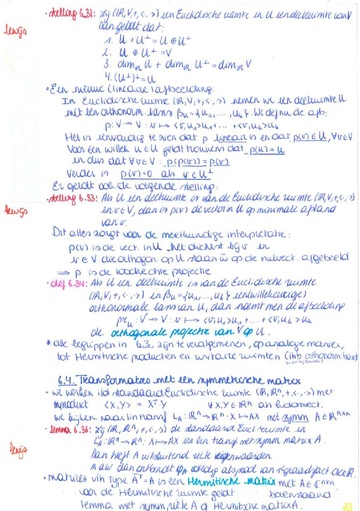 • stelling 6.31: Zij (ℝ,V,+,<,>) een Euclidische ruimte en U een deelruimte van V
bewijs
dan geldt dat:
1. U + U⊥ = U ⊕ U⊥
2. U ⊕ U⊥ = V
3. dimℝ U + dimℝ U⊥ = dimℝ V
4. (U⊥)⊥ = U
• Een nieuwe (lineaire) afbeelding:
In Euclidische ruimte (ℝ,V,+,<,>) nemen we een deelruimte U
met een orthonorm. basis βu = {u1, ..., uk}. We definiëren de afb:
p: V → V : v ↦ <v,u1>u1 + ... + <v,uk>uk
Het is eenvoudig te zien dat p lineair is en dat p(v) ∈ U, ∀v∈V.
Voor een willek. u ∈ U geldt trouwens dat p(u) = u
en dus dat ∀v∈V : p(p(v)) = p(v)
Verder is p(v)=0 als v ∈ U⊥
Er geldt ook de volgende stelling:
• stelling 6.33: Als U een deelruimte is van de Euclidische ruimte (ℝ,V,+,<,>)
bewijs
en v∈V, dan is p(v) de vector in U op minimale afstand
van v.
Dit alles zorgt voor de meetkundige interpretatie:
p(v) is de vect. in U het dichtst bij v en
v ∈ V die orthog. op U staan op de nulvect. afgebeeld
⇒ p is de loodrechte projectie
• def 6.34: Als U een deelruimte is van de Euclidische ruimte
(ℝ,V,+,<,>) en β = {u1, ..., uk} een willekeurige
orthonormale basis van U, dan noemt men de afbeelding
pru : V → V : v ↦ <v,u1>u1 + ... + <v,uk>uk
de orthogonale projectie van V op U.
• alle begrippen in 6.3. zijn te veralgemenen, op analoge manier,
tot Hermitische producten en unitaire ruimten
6.4. Transformaties met een symmetrische matrix
• we werken in de standaard Euclidische ruimte (ℝ,ℝⁿ,+,<,>) met
inproduct <X,Y> = Xᵀ·Y ∀X,Y ∈ ℝⁿ
We kijken naar lin. transf. LA : ℝⁿ → ℝⁿ : X ↦ AX met symm A ∈ ℝⁿˣⁿ
• lemma 6.36: Zij (ℝ,ℝⁿ,+,<,>) de standaard Eucl. ruimte en
bewijs
LA : ℝⁿ → ℝⁿ : X ↦ AX een lin transf met symm matrix A.
Dan heeft A uitsluitend reële eigenwaarden
• matrices v/h type Āᵀ = A is een Hermitische matrix met A ∈ ℂⁿˣⁿ
voor de Hermitische ruimte geldt bovenstaand
lemma met symm, reële A of Hermitische matrix A.